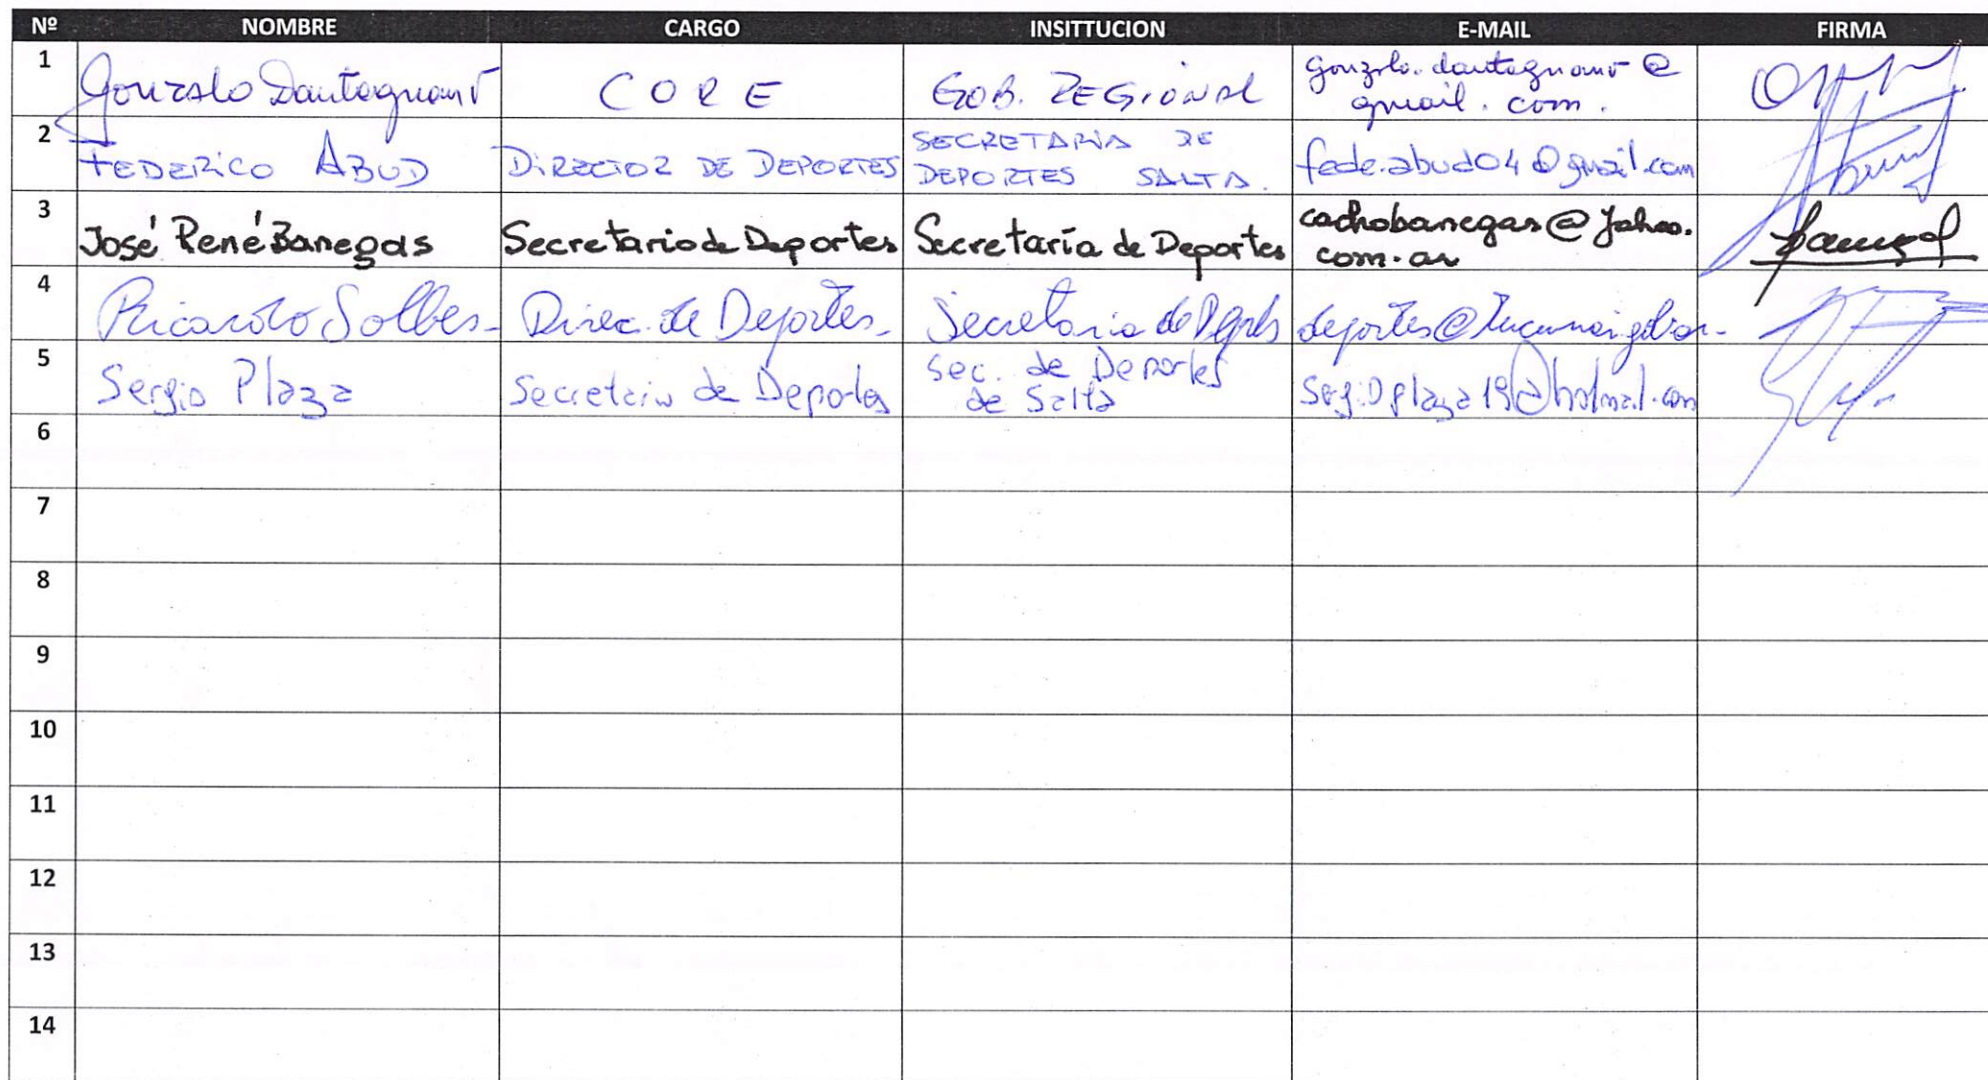 Nº NOMBRE CARGO INSITTUCION E-MAIL FIRMA
1 Gonzalo Dantagnan CORE GOB. REGIONAL gonzalo.dantagnan@
gmail.com.
2 FEDERICO ABUD DIRECTOR DE DEPORTES SECRETARIA DE
DEPORTES SALTA. fede.abud04@gmail.com
3 José René Banegas Secretario de Deportes Secretaría de Deportes cachobanegas@yahoo.
com.ar
4 Ricardo Solbes- Direc. de Deportes- Secretaria de deportes@
5 Sergio Plaza Secretario de Deportes Sec. de Deportes
de Salta sergioplaza19@hotmail.com
6
7
8
9
10
11
12
13
14